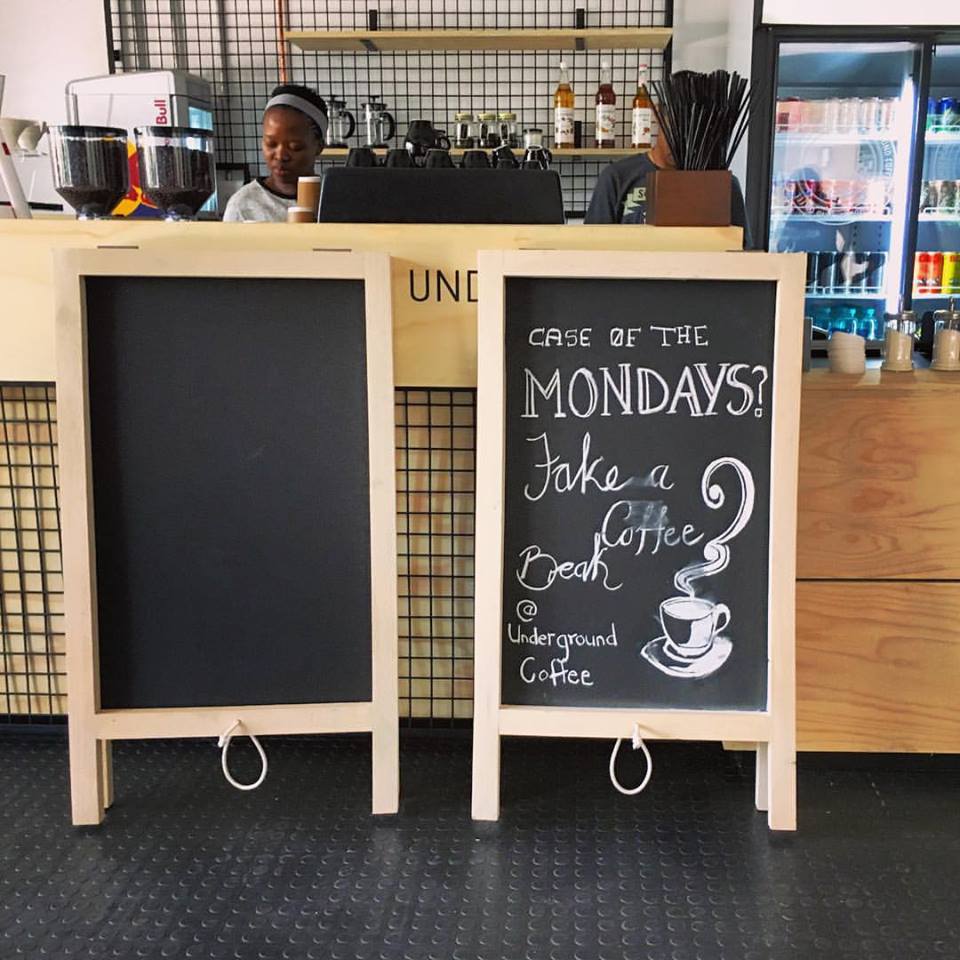 Bull
UND
CASE OF THE
MONDAYS?
Take a
Coffee
Beak
@
Underground
Coffee